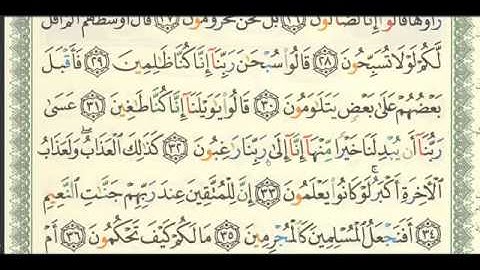 رَأَوْهَا قَالُوٓا۟ إِنَّا لَضَآلُّونَ ٢٦ بَلْ نَحْنُ مَحْرُومُونَ ٢٧ قَالَ أَوْسَطُهُمْ أَلَمْ أَقُل
لَّكُمْ لَوْلَا تُسَبِّحُونَ ٢٨ قَالُوا۟ سُبْحَٰنَ رَبِّنَآ إِنَّا كُنَّا ظَٰلِمِينَ ٢٩ فَأَقْبَلَ
بَعْضُهُمْ عَلَىٰ بَعْضٍ يَتَلَٰوَمُونَ ٣٠ قَالُوا۟ يَٰوَيْلَنَآ إِنَّا كُنَّا طَٰغِينَ ٣١ عَسَىٰ
رَبُّنَآ أَن يُبْدِلَنَا خَيْرًا مِّنْهَآ إِنَّآ إِلَىٰ رَبِّنَا رَٰغِبُونَ ٣٢ كَذَٰلِكَ ٱلْعَذَابُ ۖ وَلَعَذَابُ
ٱلْءَاخِرَةِ أَكْبَرُ ۚ لَوْ كَانُوا۟ يَعْلَمُونَ ٣٣ إِنَّ لِلْمُتَّقِينَ عِندَ رَبِّهِمْ جَنَّٰتِ ٱلنَّعِيمِ
٣٤ أَفَنَجْعَلُ ٱلْمُسْلِمِينَ كَٱلْمُجْرِمِينَ ٣٥ مَا لَكُمْ كَيْفَ تَحْكُمُونَ ٣٦ أَمْ